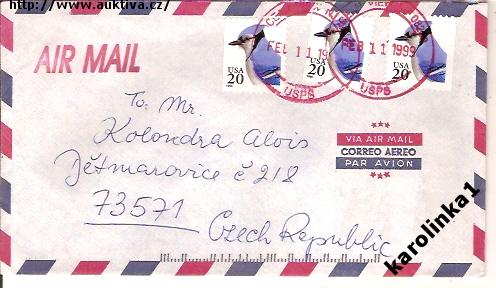 http://www.auktiva.cz/
AIR MAIL
FEB 11 1999
FEB 11 1999
USPS
USPS
USA
20
USA
20
USA
20
To: Mr.
Kolondra Alois
Dětmarovice č 218
73571
Czech Republic
VIA AIR MAIL
CORREO AEREO
PAR AVION
karolinka1